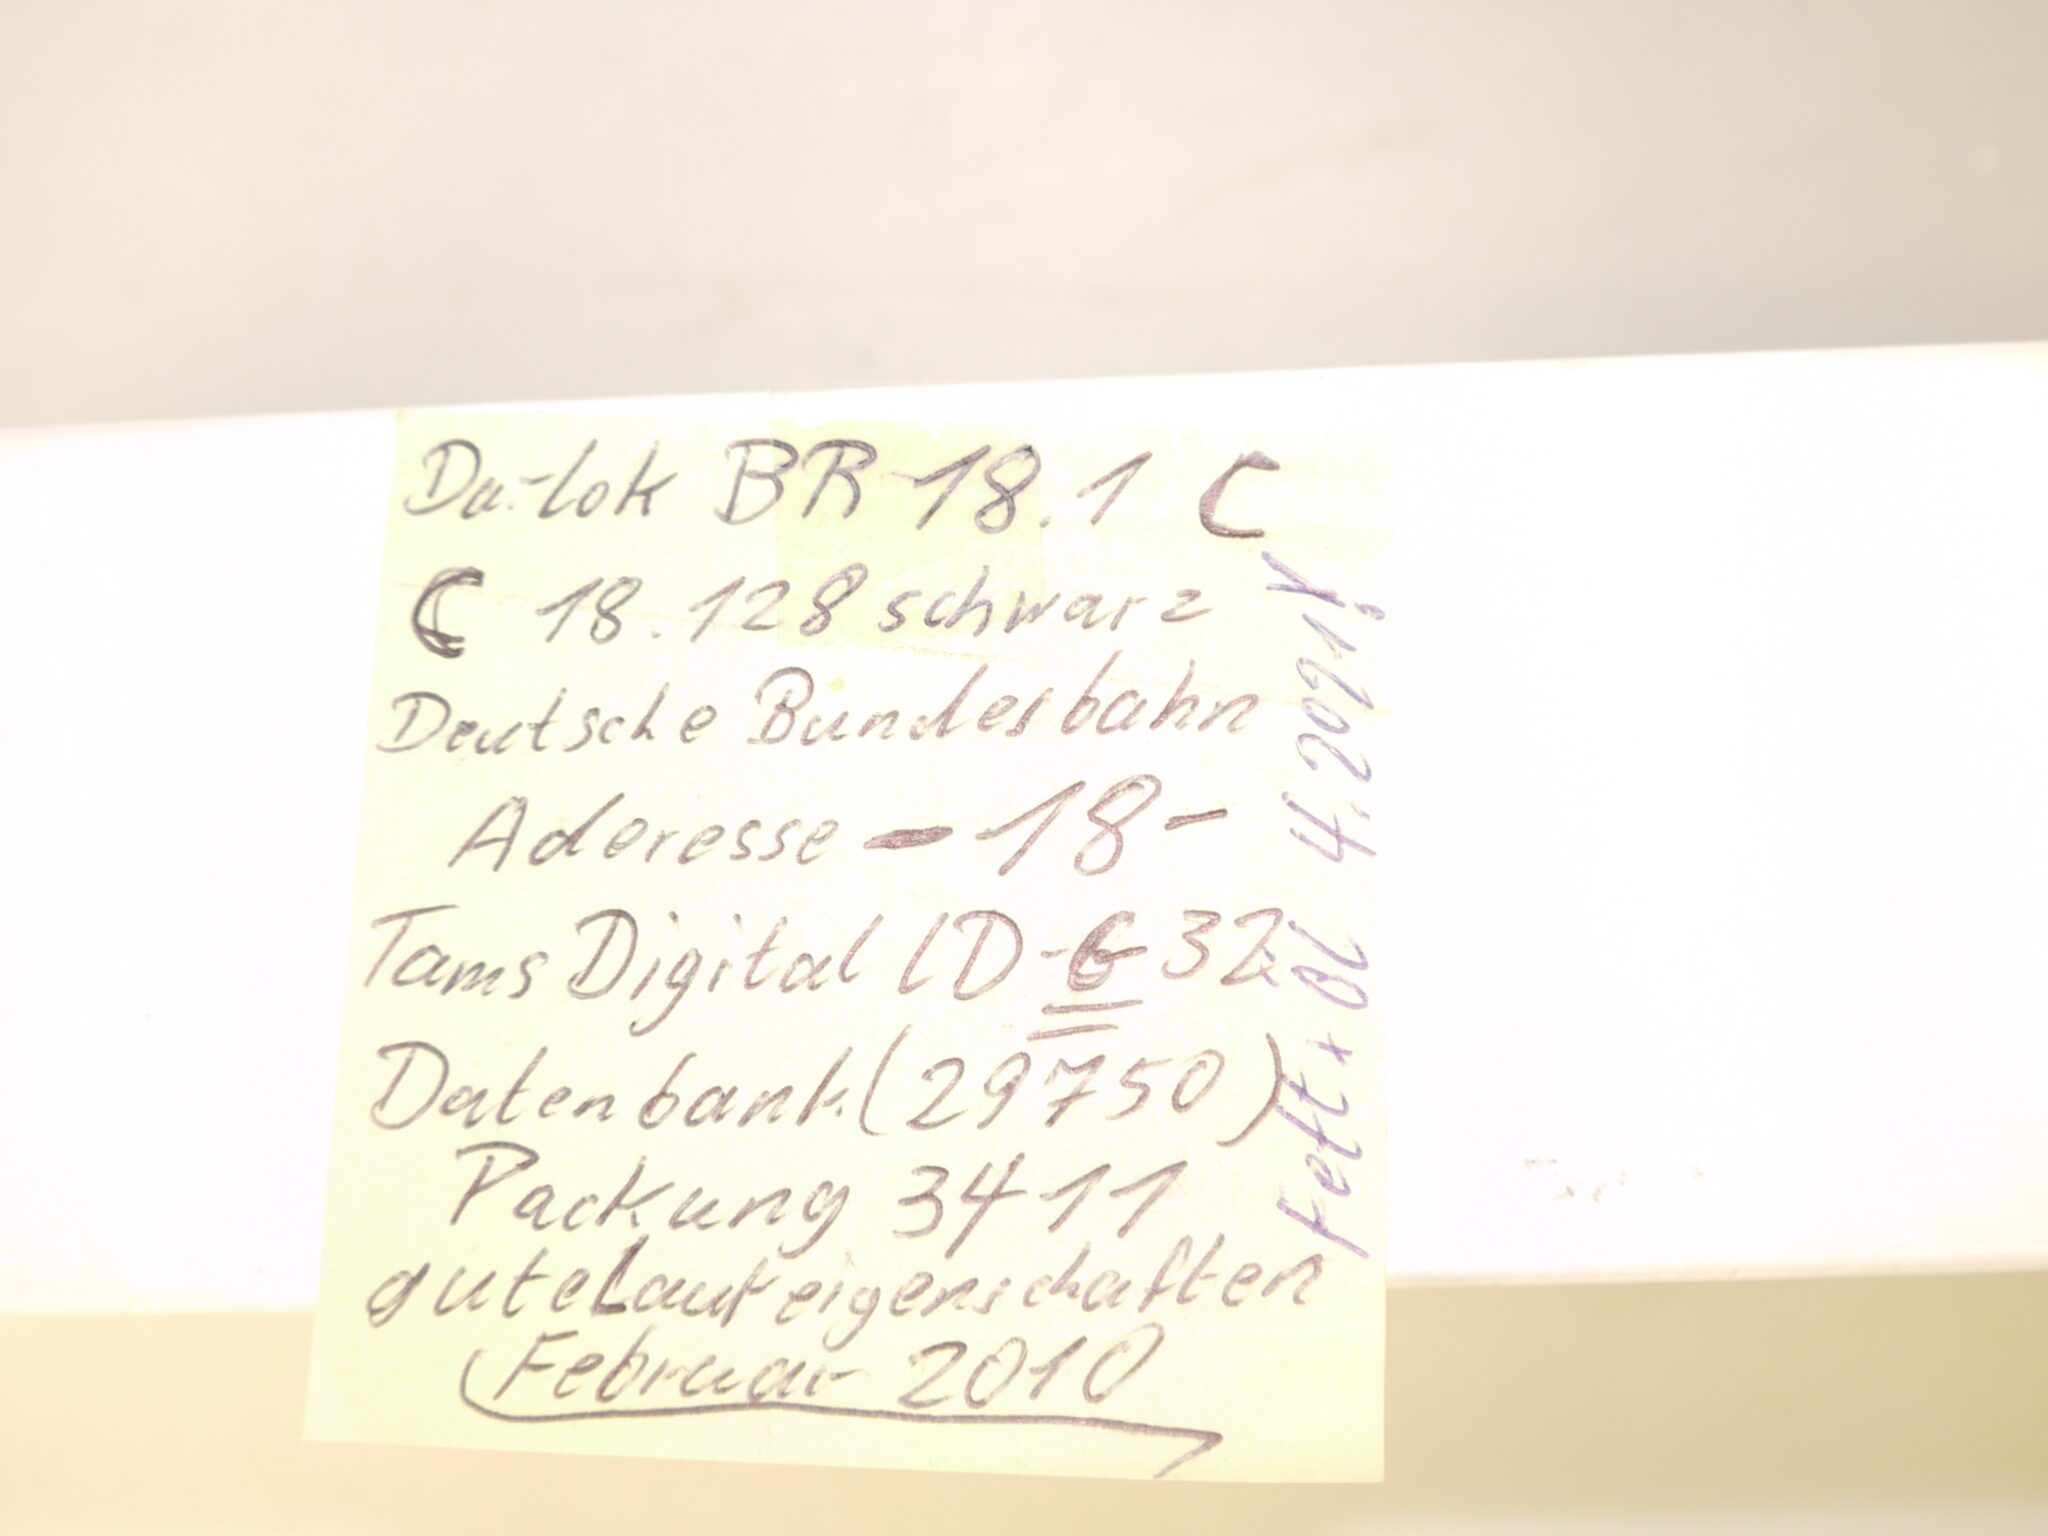 Da-lok BR 18.1 C
C 18.128 schwarz
Deutsche Bundesbahn
Aderesse - 18 -
Tams Digital LD-G 32
Datenbank (29750)
Packung 3411
gute Laufeigenschaften
Februar 2010
Fett + Öl 4.2021!